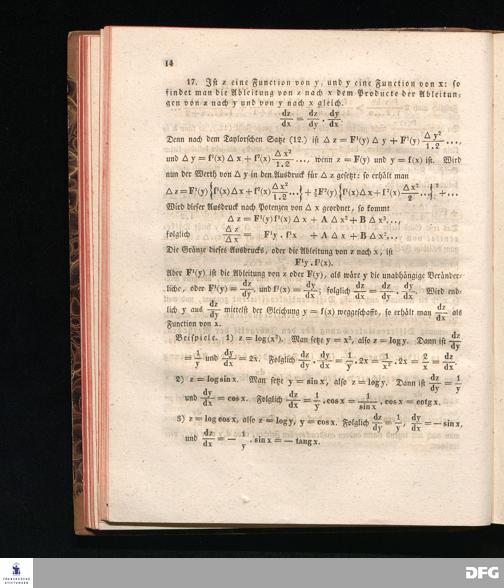 14
17. Ist z eine Function von y, und y eine Function von x: so
findet man die Ableitung von z nach x dem Producte der Ableitun-
gen von z nach y und von y nach x gleich.
dz/dx = dz/dy . dy/dx.
Denn nach dem Taylorschen Satze (12.) ist △ z = F¹(y) △ y + F²(y) △ y²/1.2 ...,
und △ y = f¹(x) △ x + f²(x) △ x²/1.2 ..., wenn z = F(y) und y = f(x) ist. Wird
nun der Werth von △ y in den Ausdruck für △ z gesetzt: so erhält man
△ z = F¹(y) {f¹(x) △ x + f²(x) △ x²/1.2 ...} + ½F²(y) {f¹(x) △ x + f²(x) △ x²/2 ...}² + ...
Wird dieser Ausdruck nach Potenzen von △ x geordnet, so kommt
△ z = F¹(y) f¹(x) △ x + A △ x² + B △ x³ ...,
folglich △ z/△ x = F¹y . f¹x + A △ x + B △ x² ...
Die Gränze dieses Ausdrucks, oder die Ableitung von z nach x, ist
F¹y . f¹(x).
Aber F¹(y) ist die Ableitung von z oder F(y), als wäre y die unabhängige Veränder-
liche, oder F¹(y) = dz/dy, und f¹(x) = dy/dx; folglich dz/dx = dz/dy . dy/dx. Wird end-
lich y aus dz/dy mittelst der Gleichung y = f(x) weggeschafft, so erhält man dz/dx als
Function von x.
Beispiele. 1) z = log(x²). Man setze y = x², also z = log y. Dann ist dz/dy
= 1/y und dy/dx = 2x. Folglich dz/dy . dy/dx = 1/y . 2x = 1/x² . 2x = 2/x = dz/dx.
2) z = log sin x. Man setze y = sin x, also z = log y. Dann ist dz/dy = 1/y
und dy/dx = cos x. Folglich dz/dx = 1/y . cos x = 1/sin x . cos x = cotg x.
3) z = log cos x, also z = log y, y = cos x. Folglich dz/dy = 1/y, dy/dx = — sin x,
und dz/dx = — 1/y . sin x = — tang x.
FRANCKESCHE
STIFTUNGEN
DFG